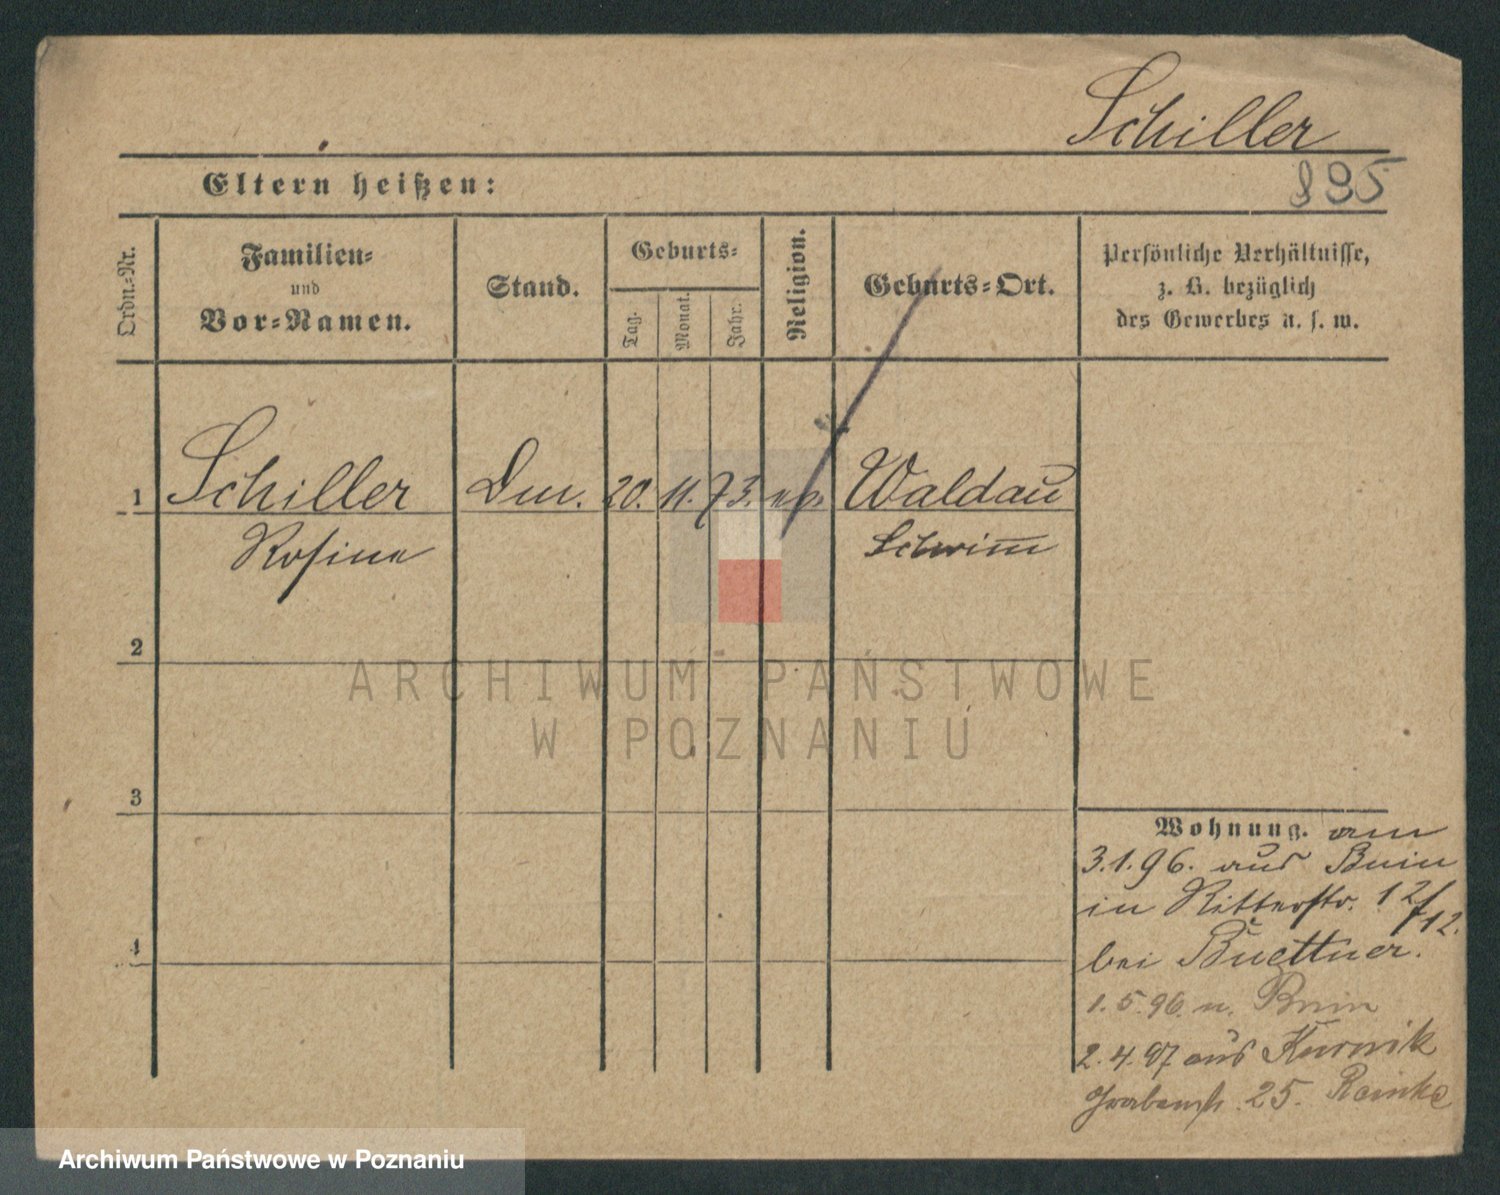 Schiller
895
Eltern heißen:
Ordn.=Nr.
Familien=
und
Vor=Namen.
Stand.
Geburts=
Tag.
Monat.
Jahr.
Religion.
Geburts=Ort.
Persönliche Verhältnisse,
z. B. bezüglich
des Gewerbes u. s. w.
1 Schiller 20. 11. 73. Waldau
Rosine Schrimm
2
3
4
Wohnung. am
3.1.96. aus Bnin
in Ritterstr. 12/12.
bei Buettner.
1.5.96. n. Bnin
2.4.97 aus Kurnik
Grabenstr. 25. Reinke
ARCHIWUM PAŃSTWOWE
W POZNANIU
Archiwum Państwowe w Poznaniu